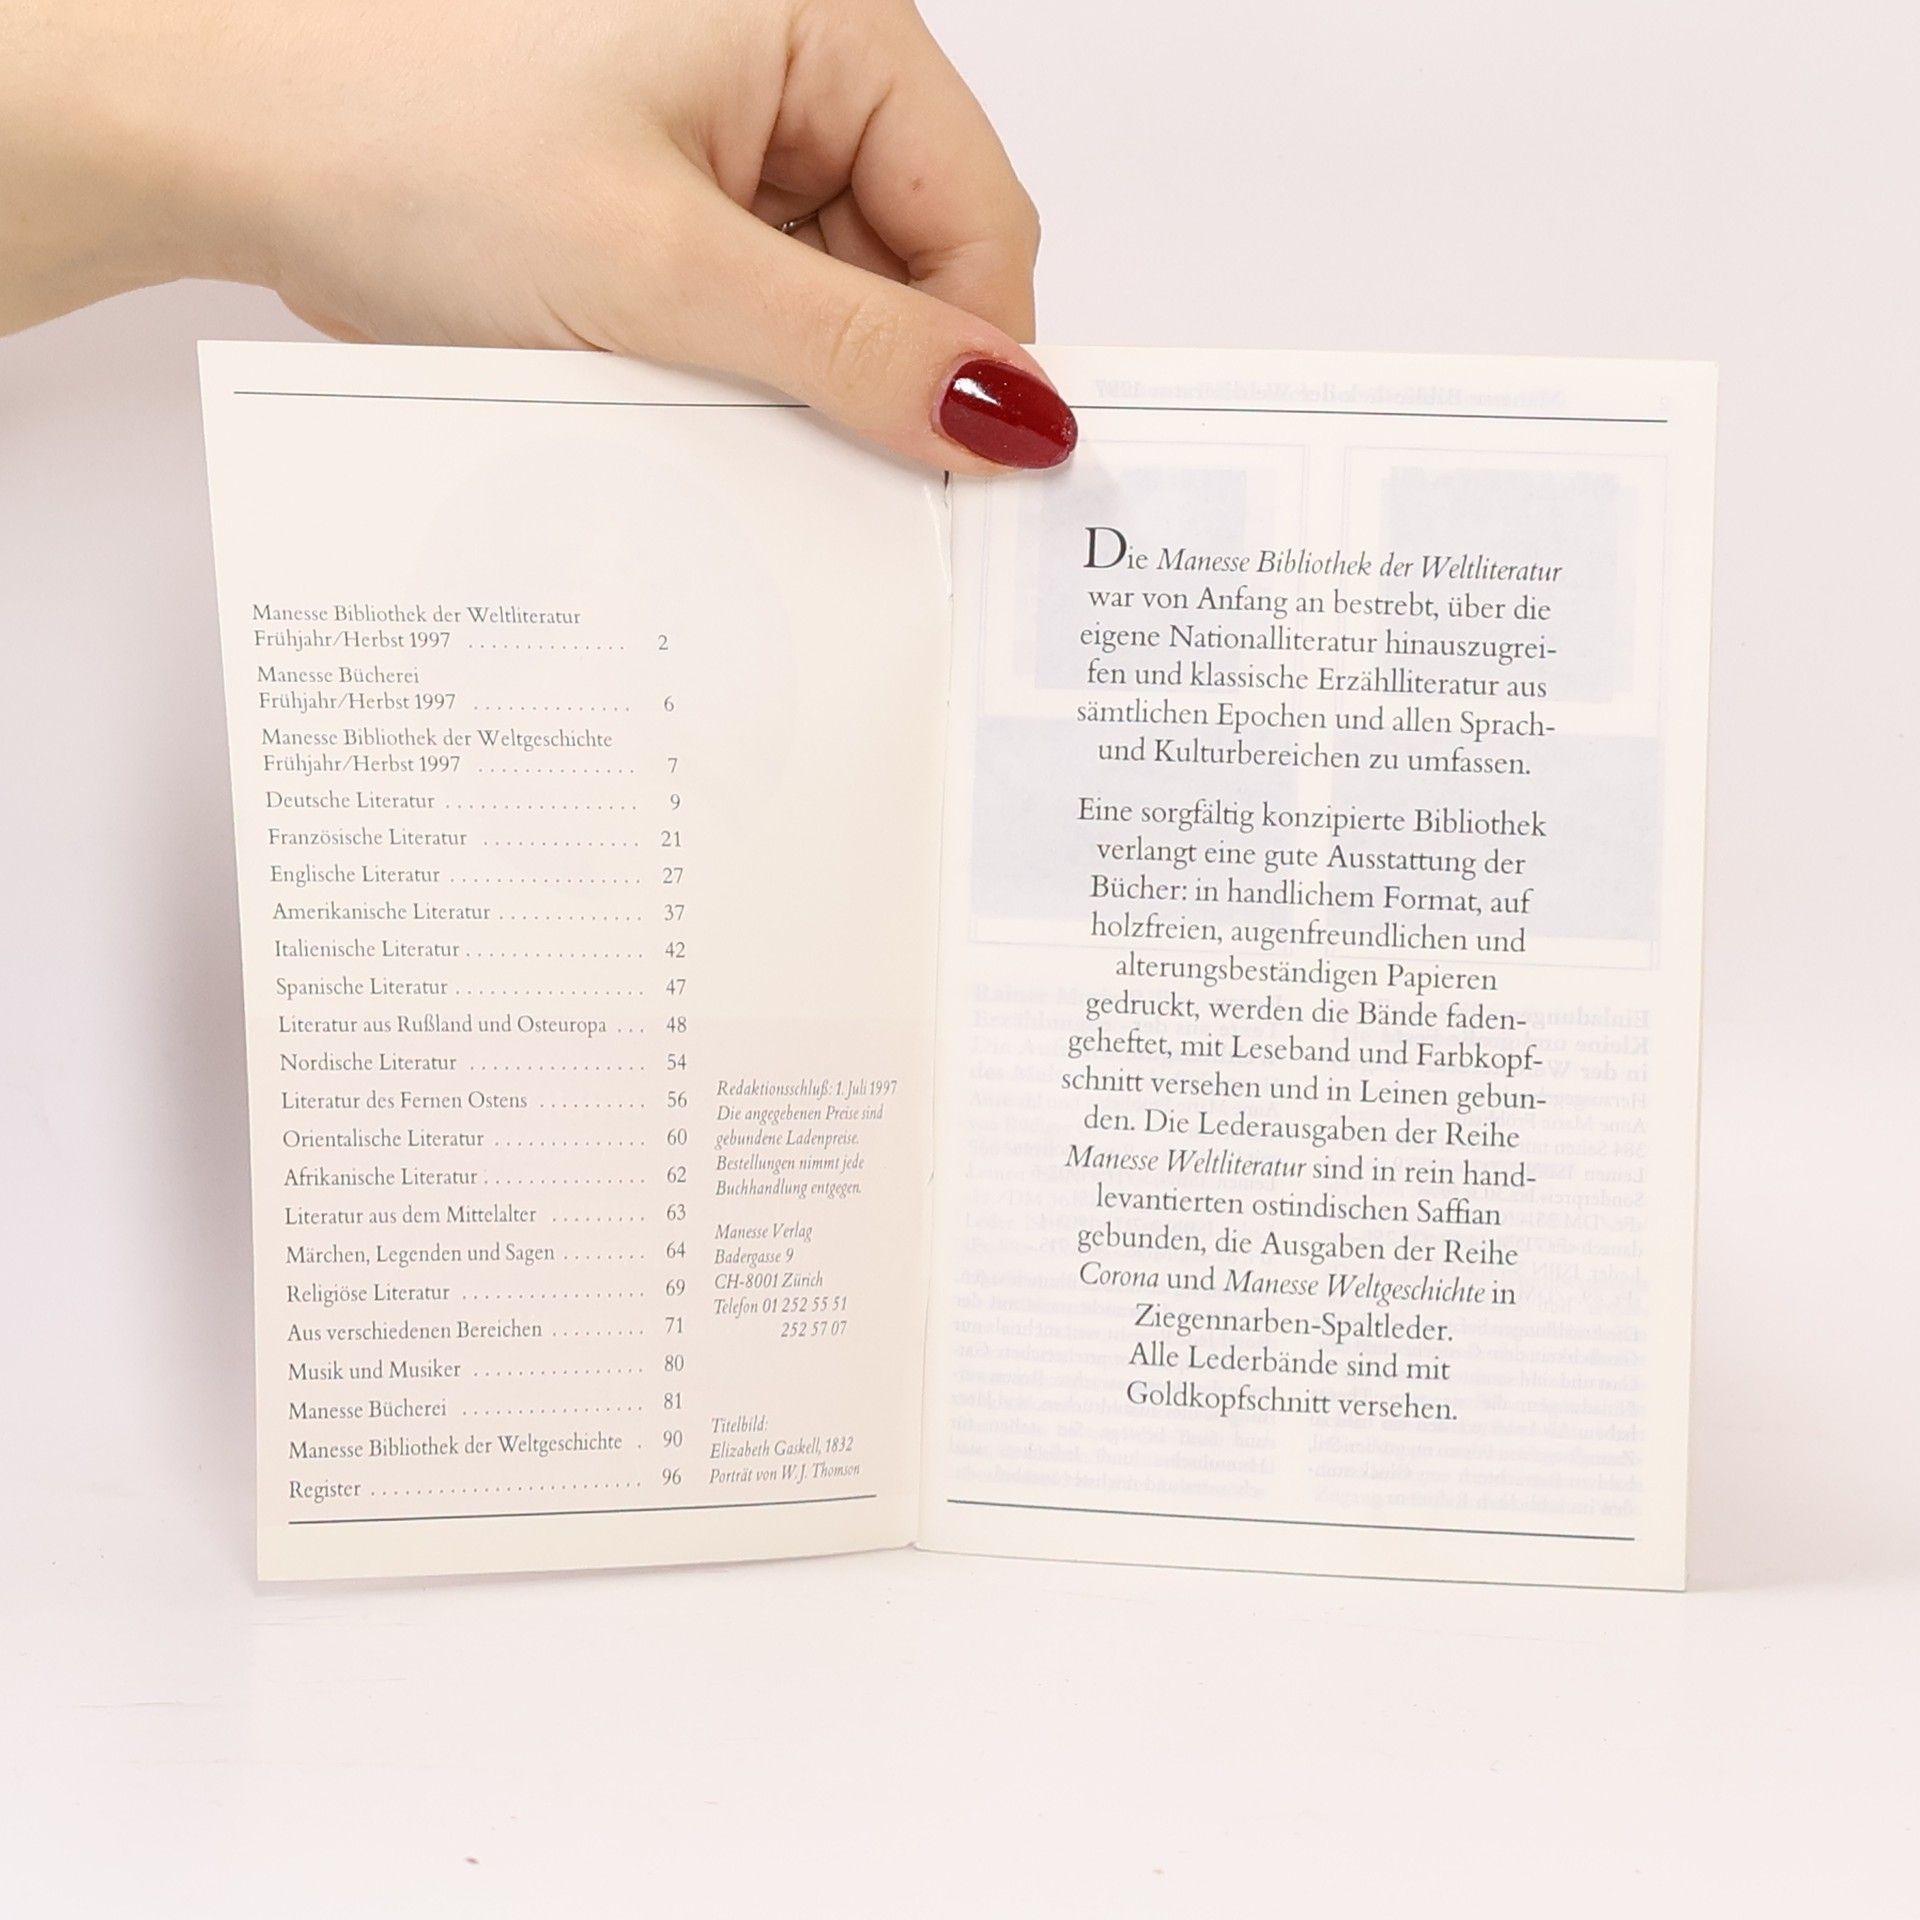 Manesse Bibliothek der Weltliteratur
Frühjahr/Herbst 1997 .............. 2
Manesse Bücherei
Frühjahr/Herbst 1997 .............. 6
Manesse Bibliothek der Weltgeschichte
Frühjahr/Herbst 1997 .............. 7
Deutsche Literatur ................. 9
Französische Literatur .............. 21
Englische Literatur ................. 27
Amerikanische Literatur ............. 37
Italienische Literatur ................ 42
Spanische Literatur ................. 47
Literatur aus Rußland und Osteuropa ... 48
Nordische Literatur ................ 54
Literatur des Fernen Ostens .......... 56
Orientalische Literatur .............. 60
Afrikanische Literatur ............... 62
Literatur aus dem Mittelalter ......... 63
Märchen, Legenden und Sagen ........ 64
Religiöse Literatur ................. 69
Aus verschiedenen Bereichen ......... 71
Musik und Musiker ................ 80
Manesse Bücherei ................. 81
Manesse Bibliothek der Weltgeschichte . 90
Register ......................... 96
Redaktionsschluß: 1. Juli 1997
Die angegebenen Preise sind
gebundene Ladenpreise.
Bestellungen nimmt jede
Buchhandlung entgegen.
Manesse Verlag
Badergasse 9
CH-8001 Zürich
Telefon 01 252 55 51
252 57 07
Titelbild:
Elizabeth Gaskell, 1832
Porträt von W. J. Thomson
Die Manesse Bibliothek der Weltliteratur
war von Anfang an bestrebt, über die
eigene Nationalliteratur hinauszugrei-
fen und klassische Erzählliteratur aus
sämtlichen Epochen und allen Sprach-
und Kulturbereichen zu umfassen.
Eine sorgfältig konzipierte Bibliothek
verlangt eine gute Ausstattung der
Bücher: in handlichem Format, auf
holzfreien, augenfreundlichen und
alterungsbeständigen Papieren
gedruckt, werden die Bände faden-
geheftet, mit Leseband und Farbkopf-
schnitt versehen und in Leinen gebun-
den. Die Lederausgaben der Reihe
Manesse Weltliteratur sind in rein hand-
levantierten ostindischen Saffian
gebunden, die Ausgaben der Reihe
Corona und Manesse Weltgeschichte in
Ziegennarben-Spaltleder.
Alle Lederbände sind mit
Goldkopfschnitt versehen.